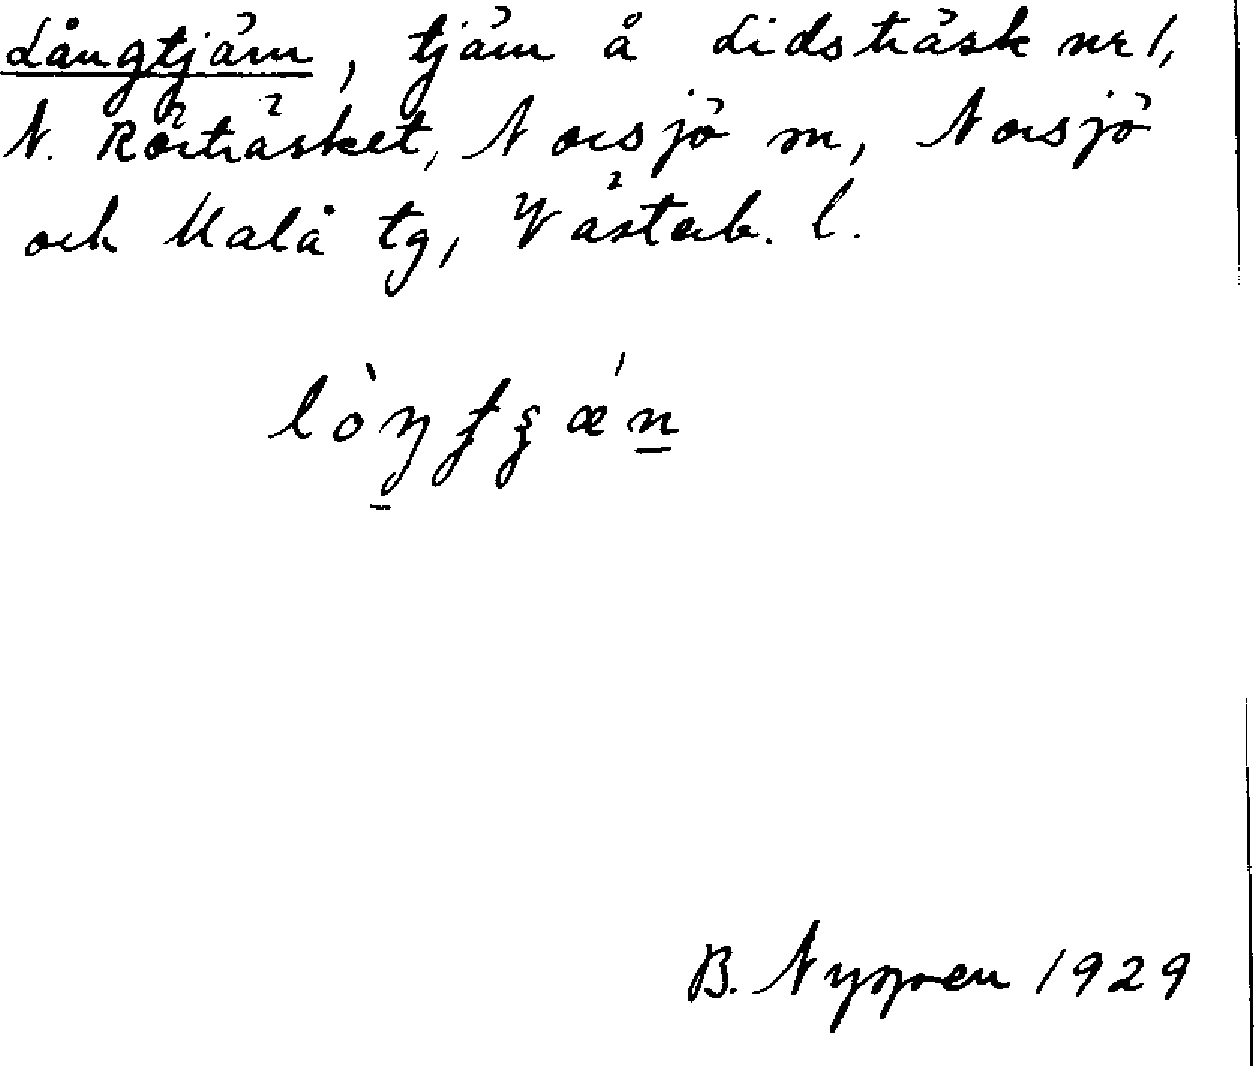 Långtjärn, tjärn å Lidsträsk nr 1,
N. Rörträsket, Norsjö sn, Norsjö
och Malå tg, Västerb. l.
B. Nygren 1929